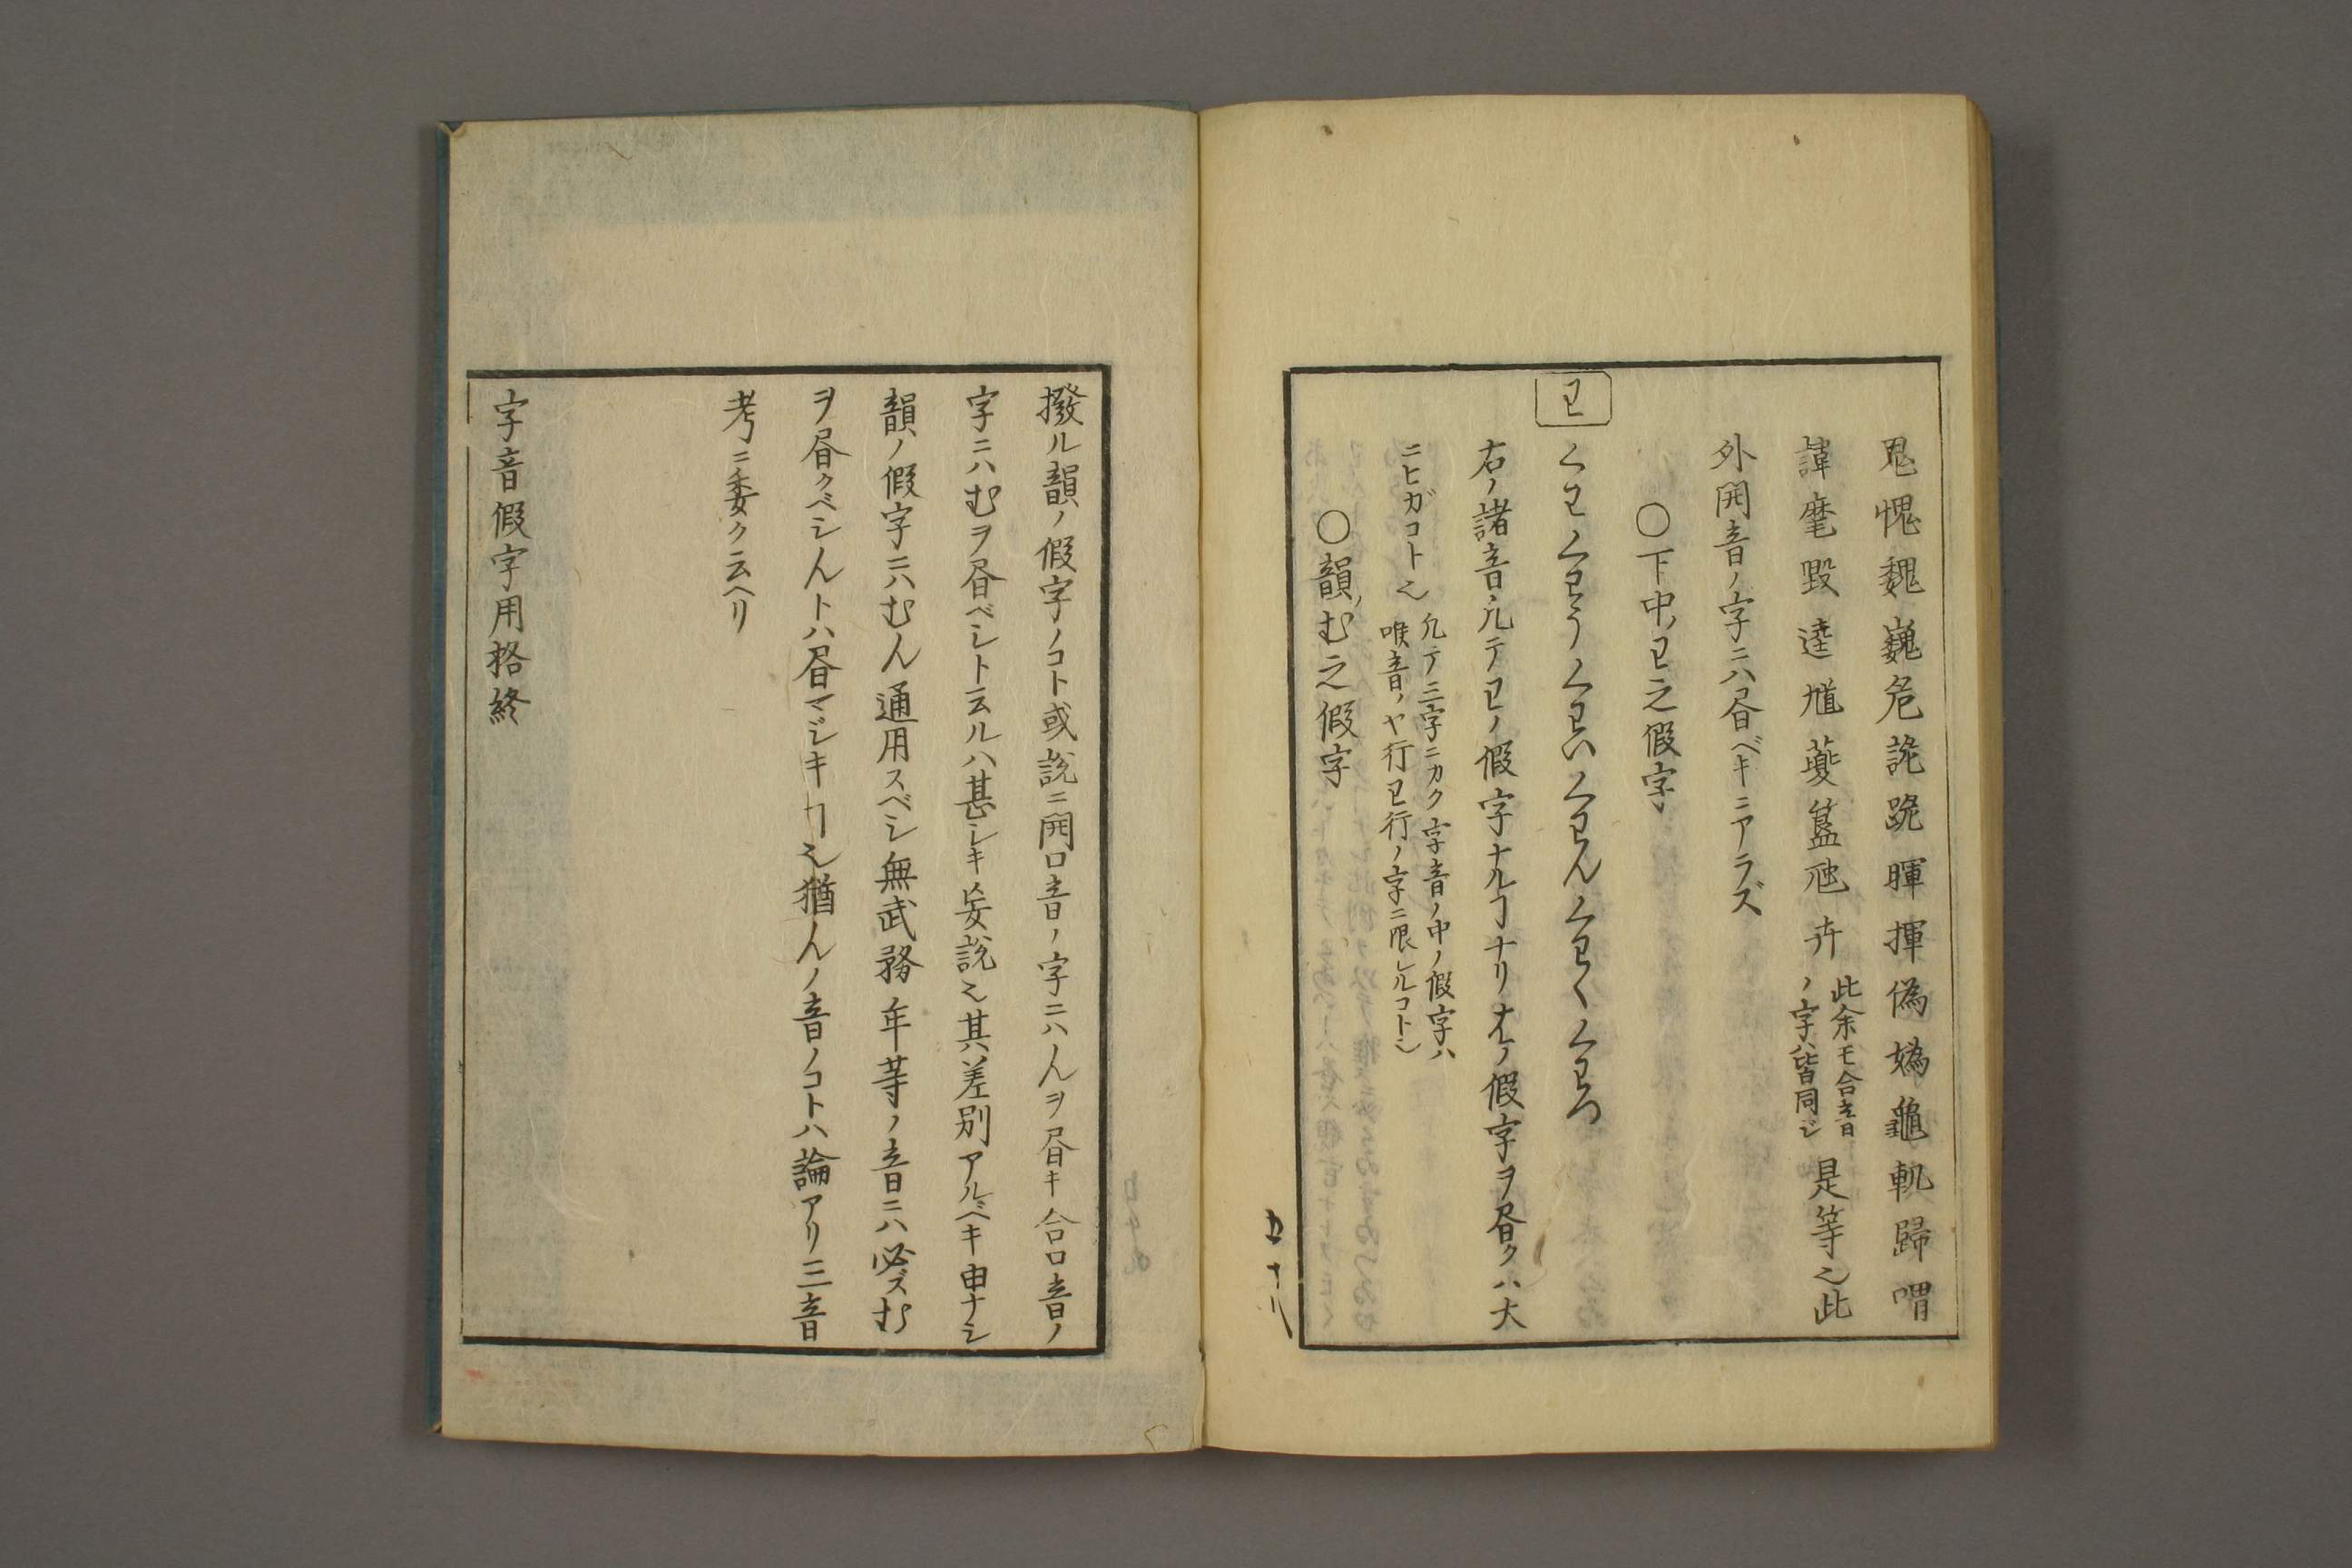 鬼愧魏巍危詭跪暉揮偽媯龜軌歸喟
諱麾毀逵馗蘷簋虺卉此余モ合音ノ字ハ皆同ジ是等也此
外開音ノ字ニハ書ベキニアラズ
〇下中ノわ之假字
わ
くわくわうくわいくわんくわくくわつ
右ノ諸音凡テわノ假字ナルヿナリオノ假字ヲ書クハ大
ニヒガコト也凡テ三字ニカク字音ノ中ノ假字ハ
喉音ノヤ行わ行ノ字ニ限レルコト也
〇韻ノむ之假字
五十八
撥ル韻ノ假字ノコト或説ニ開口音ノ字ニハんヲ書キ合口音ノ
字ニハむヲ書ベシト云ルハ甚シキ妄説也其差別アルベキ由ナシ
韻ノ假字ニハむん通用スベシ無武務牟等ノ音ニハ必ズむ
ヲ書クベシんトハ書マジキヿ也猶んノ音ノコトハ論アリ三音
考ニ委ク云ヘリ
字音假字用格終